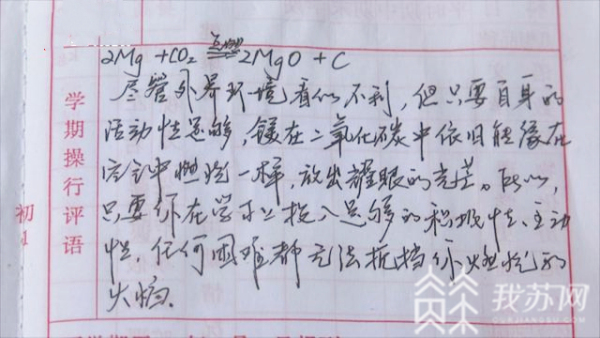 2Mg + CO₂ 点燃══ 2MgO + C
尽管外界环境看似不利，但只要自身的
活动性足够，镁在二氧化碳中依旧能像在
空气中燃烧一样，放出耀眼的光芒。所以，
只要你在学业上投入足够的积极性、主动
性，任何困难都无法抵挡你燃烧的
火焰。
学期操行评语
初
我苏网
OURJIANGSU.COM